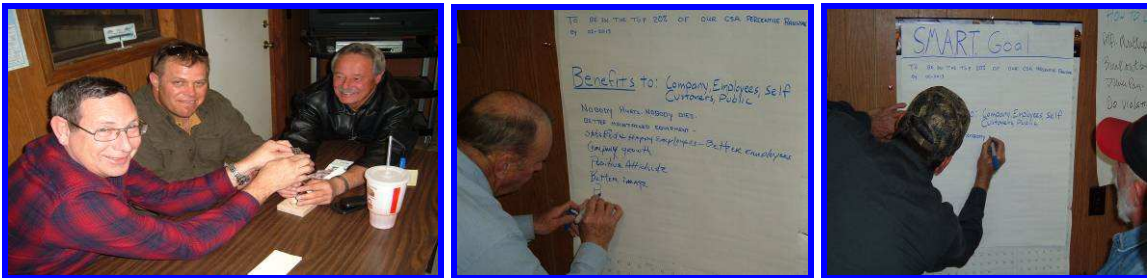 TO BE IN THE TOP 20% OF OUR CSA PERCENTILE RANKING
BY 02-2013
Benefits to: Company, Employees, Self
Customers, Public
NOBODY HURT. NOBODY DIES.
BETTER MAINTAINED EQUIPMENT -
Happy Employees - Better Employees
Company growth
Positive Attitude
Better image
SMART Goal
TO BE IN THE TOP 20% OF OUR CSA PERCENTILE RANKING
BY 02-2013
Company, Employees, Self
Customers, Public
NOBODY